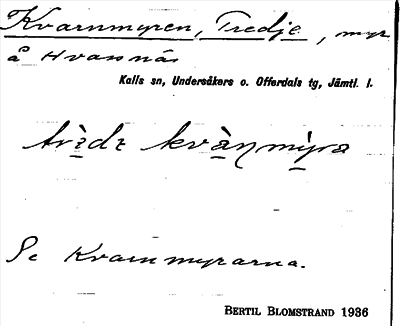 Kvarnmyren, Tredje, myr
å Hvassnäs
Kalls sn, Undersåkers o. Offerdals tg, Jämtl. l.
Se Kvarnmyrarna.
BERTIL BLOMSTRAND 1936